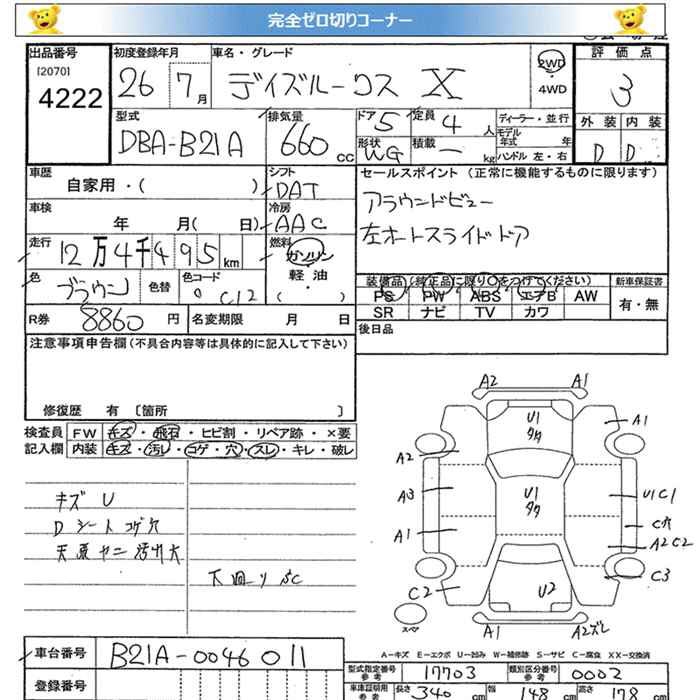 完全ゼロ切りコーナー
出品番号 初度登録年月 車名・グレード 2WD ・ 4WD 評価点
[2070] 4222 26 7月 デイズルークス X 3
型式 排気量 ドア 5 定員 4 人 ディーラー・並行 外装 内装
DBA-B21A 660 cc 形状 WG 積載 ー kg モデル年式 年 ハンドル 左・右 D D
車歴 シフト セールスポイント (正常に機能するものに限ります)
自家用・( ) DAT アラウンドビュー
車検 年 月( 日) 冷房 AAC 左オートスライドドア
走行 12万4千495 km 燃料 ガソリン
色 ブラウン 色替 色コード C12 軽油 ( )
装備品 (純正品に限り○をつけてください) 新車保証書
PS PW ABS エアB AW 有・無
SR ナビ TV カワ
R券 8860 円 名変期限 月 日 後日品
注意事項申告欄(不具合内容等は具体的に記入して下さい)
修復歴 有 〔箇所 〕
検査員 FW キズ・飛石・ヒビ割・リペア跡・×要
記入欄 内装 キズ・汚レ・コゲ・穴・スレ・キレ・破レ
キズ U
D シート コゲ穴
天張ヤニ汚れ大
下回りSC
A2 A1
U1 A1
A2
A3 U1 U1C1
A1 C穴
A2C2
C2 U2 C3
スペア
A1 A2ズレ
A-キズ E-エクボ U-凹み W-補修跡 S-サビ C-腐食 XX-交換済
車台番号 B21A-0046011
登録番号
型式指定番号 参考 17703 類別区分番号 参考 0002
車庫証明用 参考 長さ 340 cm 幅 148 cm 高さ 178 cm